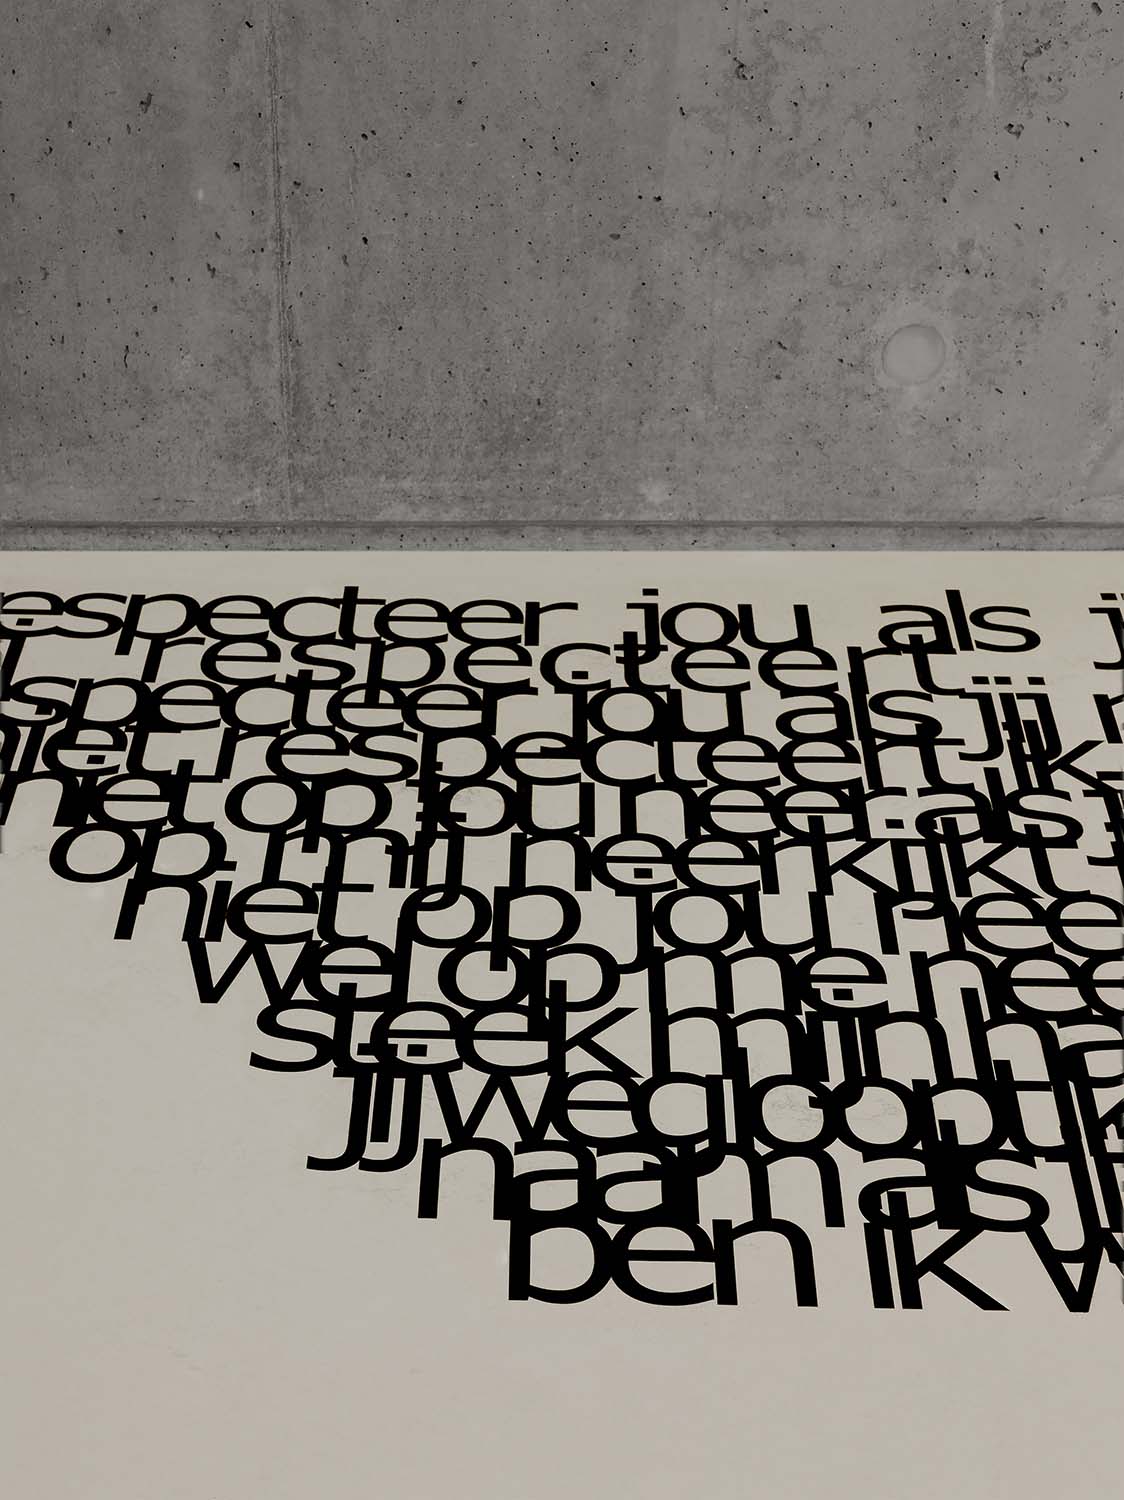 especteer jou als j
respecteert
specteer jou als jij n
niet respecteert ik
niet op jou neer als
op mij neerkijkt
niet op jou nee
wel op me nee
steek mijn ha
jij wegloopt ik
naam als ji
ben ik w